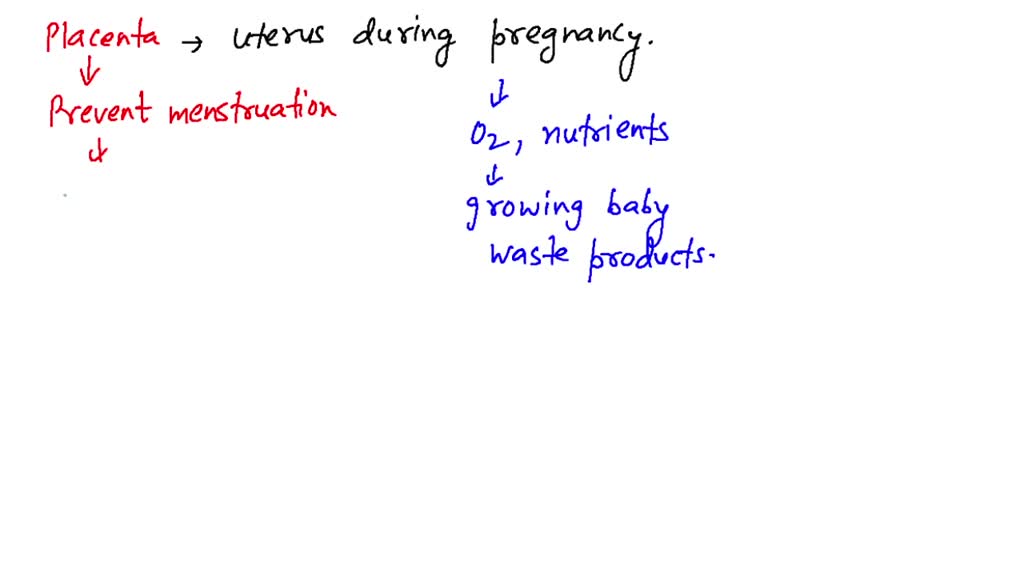 Placenta → uterus during pregnancy.
↓
Prevent menstruation
↓
↓
O2, nutrients
↓
growing baby
waste products.